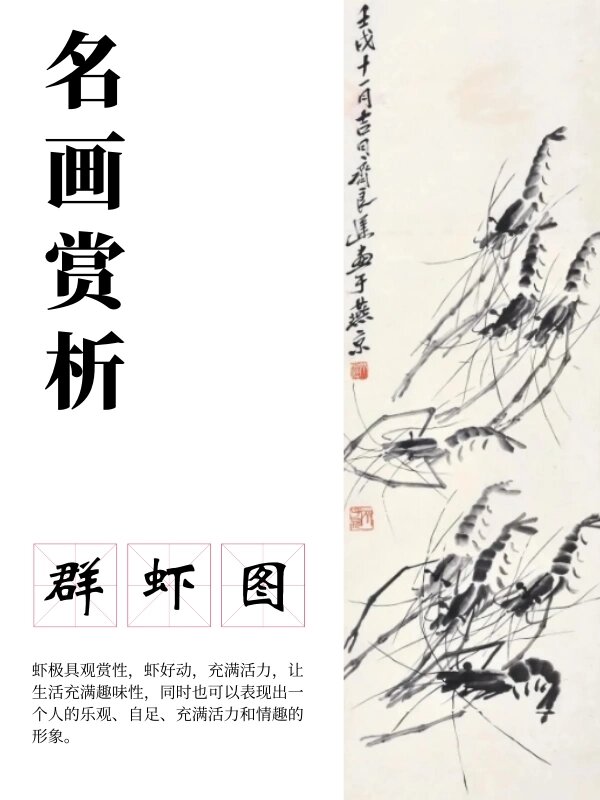 名画赏析
群虾图
虾极具观赏性，虾好动，充满活力，让
生活充满趣味性，同时也可以表现出一
个人的乐观、自足、充满活力和情趣的
形象。
壬戌十一月吉日齊良璪画于燕京